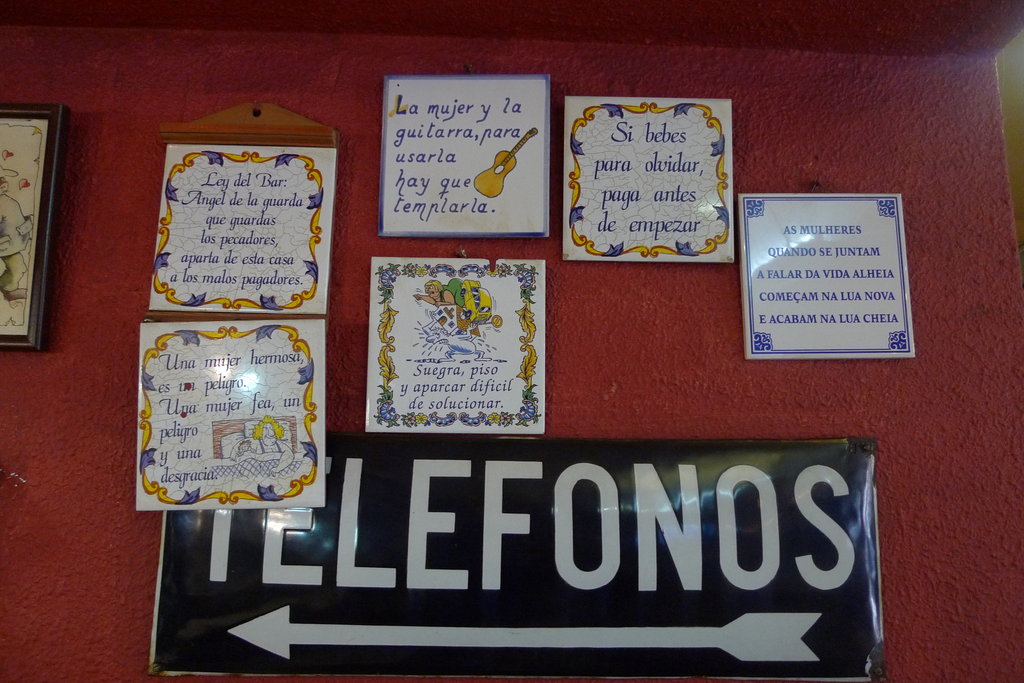 Ley del Bar:
Angel de la guarda
que guardas
los pecadores,
aparta de esta casa
a los malos pagadores.
La mujer y la
guitarra, para
usarla
hay que
templarla.
Si bebes
para olvidar,
paga antes
de empezar
AS MULHERES
QUANDO SE JUNTAM
A FALAR DA VIDA ALHEIA
COMEÇAM NA LUA NOVA
E ACABAM NA LUA CHEIA
Una mujer hermosa,
es un peligro.
Una mujer fea, un
peligro
y una
desgracia.
Suegra, piso
y aparcar dificil
de solucionar.
TELEFONOS